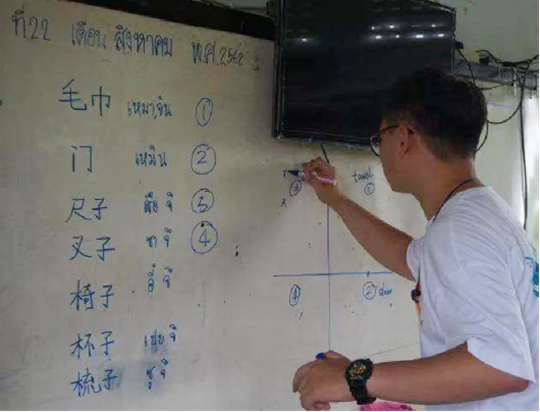 ที่22 เดือน สิงหาคม พ.ศ.2562
毛巾 เหมาจิน ①
门 เหมิน ②
尺子 ฉือ จึ ③
叉子 ชา จึ ④
椅子 อี่ จึ
杯子 เปย จึ
梳子 ซู จึ
③ towel ①
④ ② door